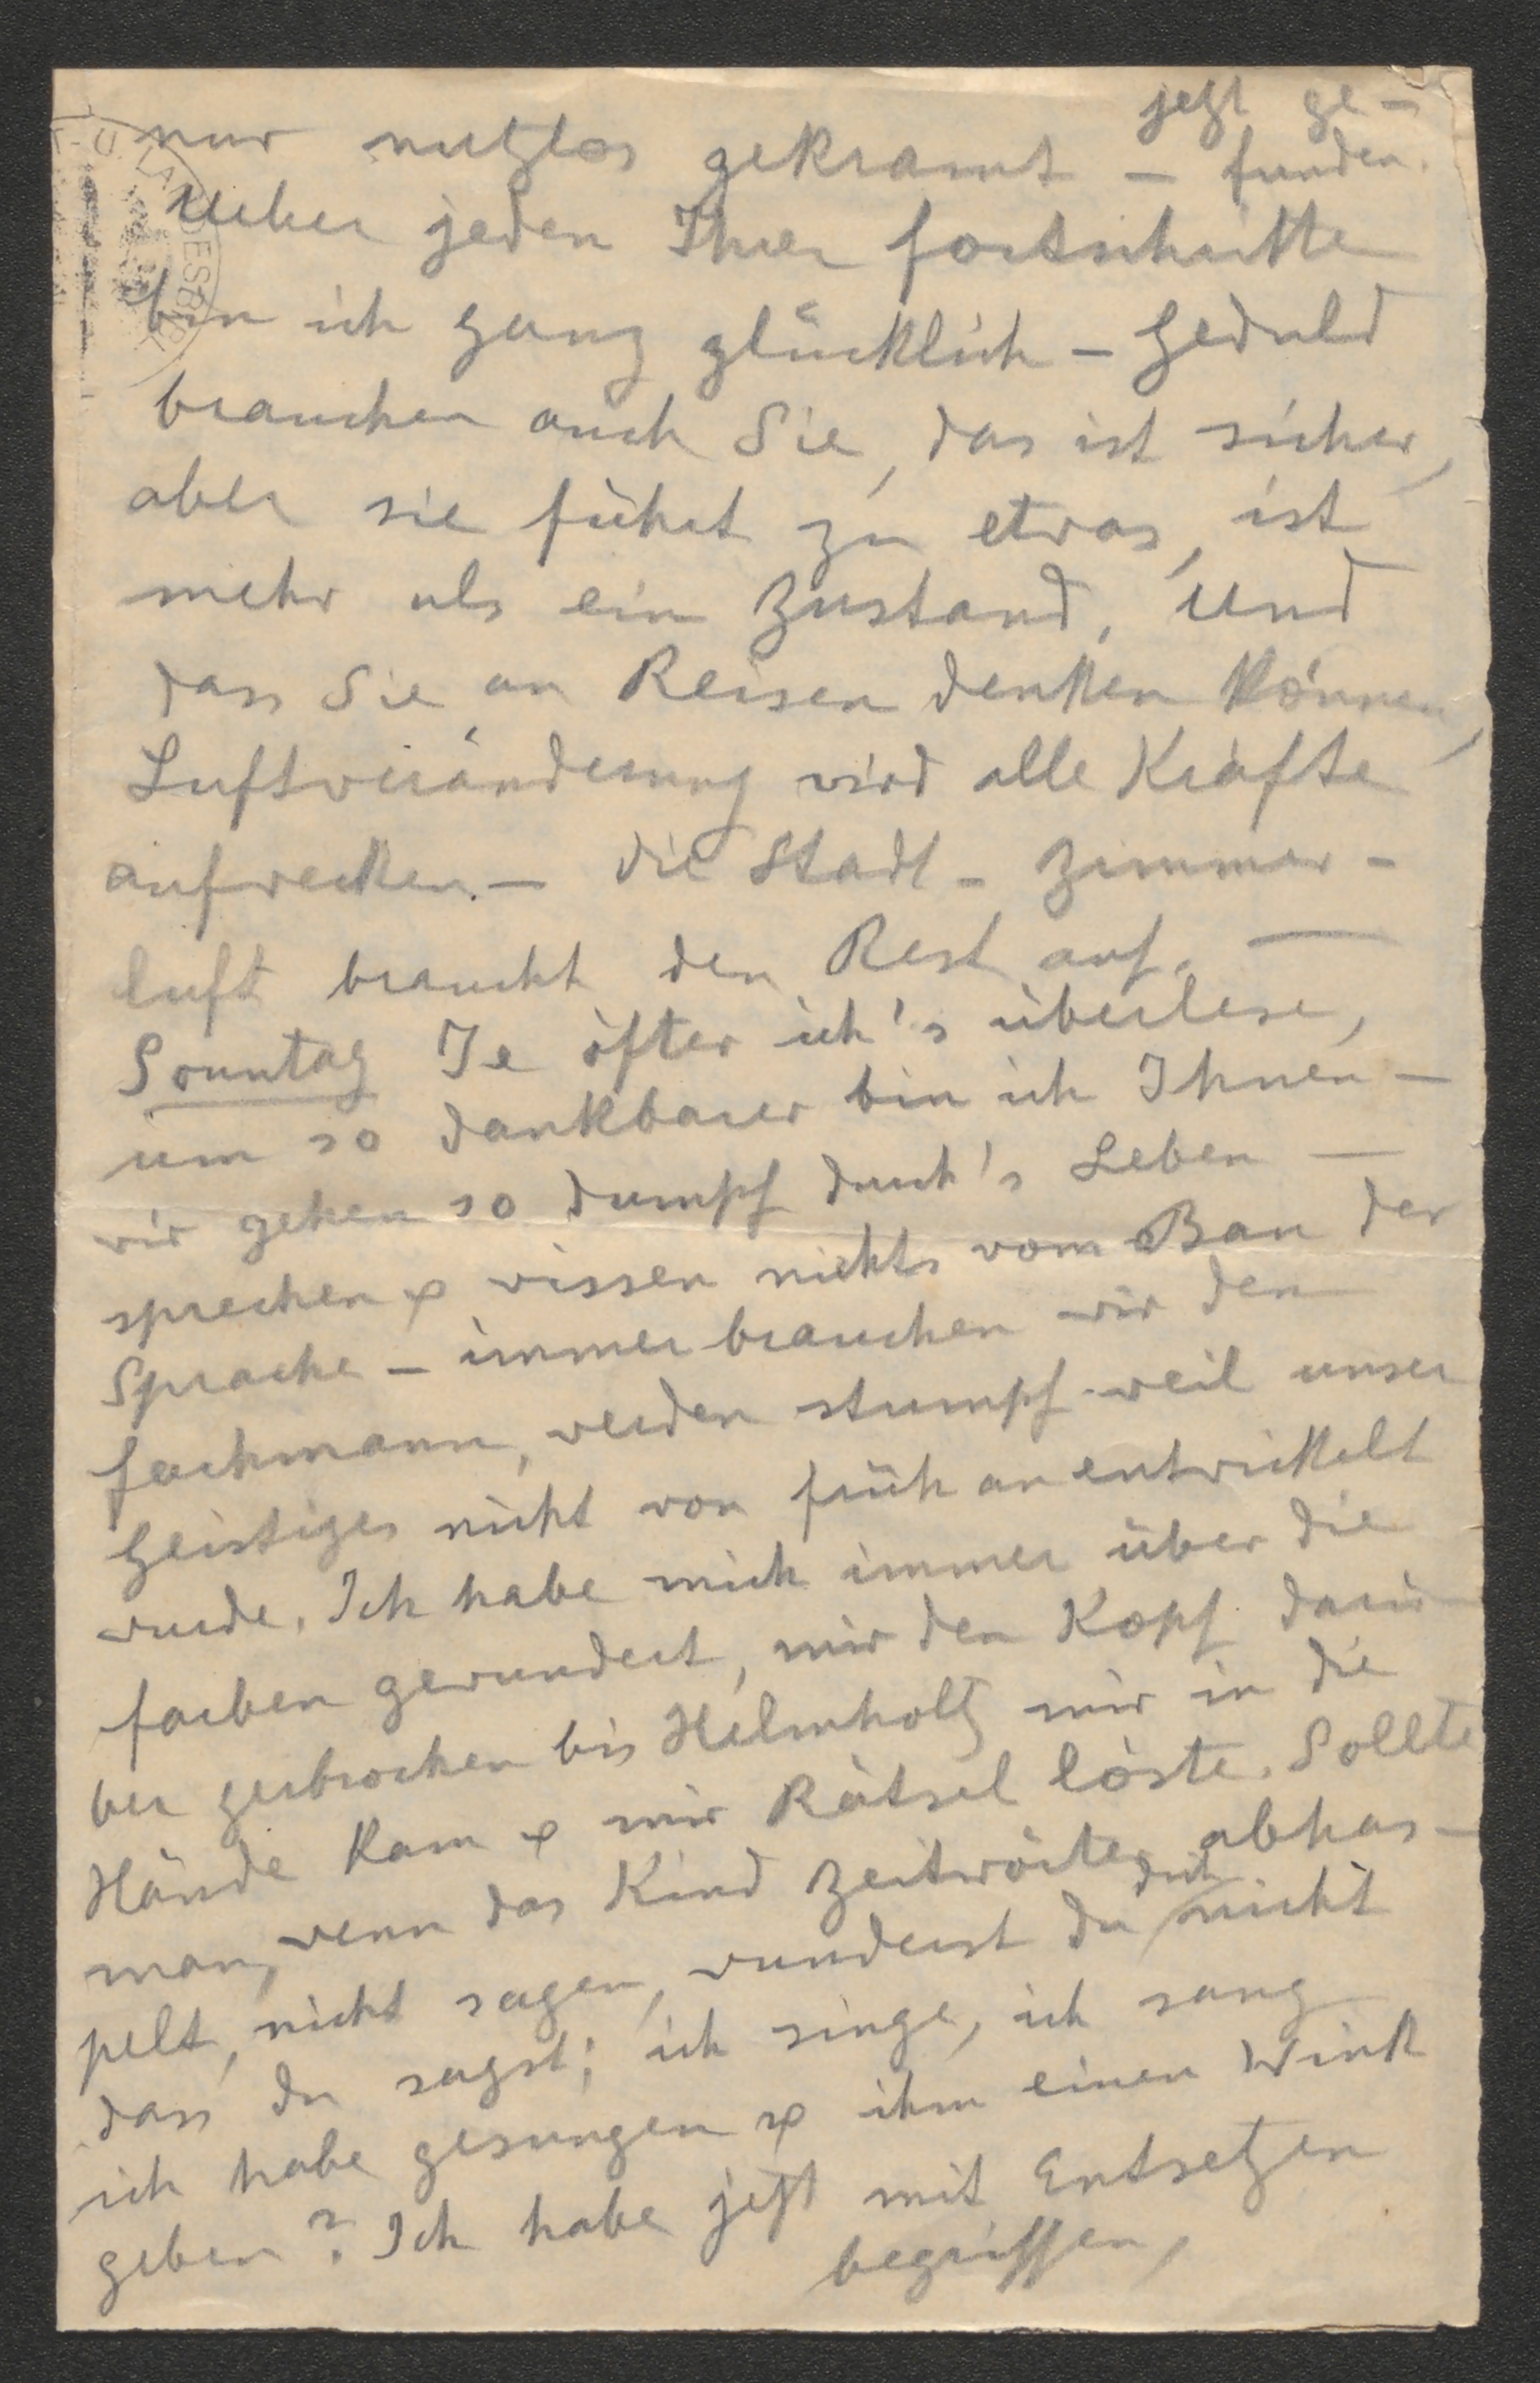 nur nutzlos gekramt – jetzt ge-
funden.
Ueber jeden Ihrer Fortschritte
bin ich ganz glücklich – Geduld
brauchen auch Sie, das ist sicher,
aber sie führt zu etwas, ist
mehr als ein Zustand. Und
dass Sie an Reisen denken können,
Luftveränderung wird alle Kräfte
aufwecken. – die Stadt- Zimmer-
luft braucht den Rest auf. —
Sonntag Je öfter ich's überlese,
um so dankbarer bin ich Ihnen –
wir gehen so dumpf durch's Leben —
sprechen & wissen nichts vom Bau der
Sprache – immer brauchen wir den
Fachmann, werden stumpf weil unser
Geistiges nicht von früh an entwickelt
wurde. Ich habe mich immer über die
Farben gewundert, mir den Kopf darü-
ber zerbrochen bis Helmholtz mir in die
Hände kam & mir Rätsel löste. Sollte
man, wenn das Kind Zeitwörter abhas-
pelt, nicht sagen, wunderst du dich nicht
dass du sagst; ich singe, ich sang
ich habe gesungen & ihm einen Wink
geben? Ich habe jetzt mit Entsetzen
begriffen,
L.U. LANDESBIBL